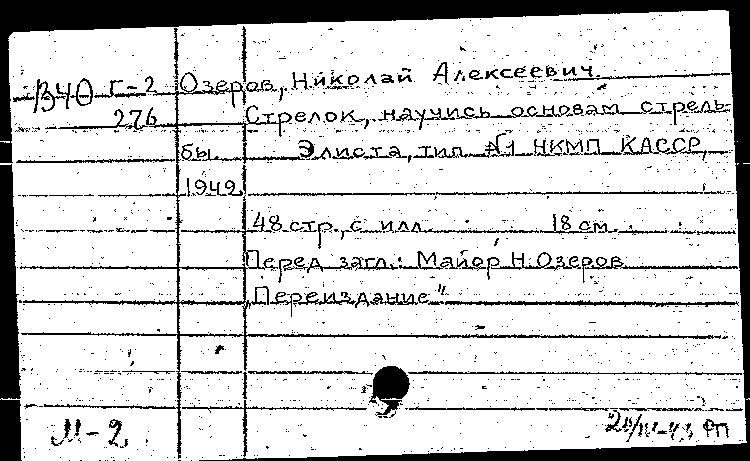 В40 Г-2 Озеров, Николай Алексеевич
276 Стрелок, научись основам стрель-
бы. Элиста, тип №1 НКМП КАССР,
1942.
48 стр., с илл. 18 см.
Перед загл.: Майор Н. Озеров
„Переиздание"
М-2 РП